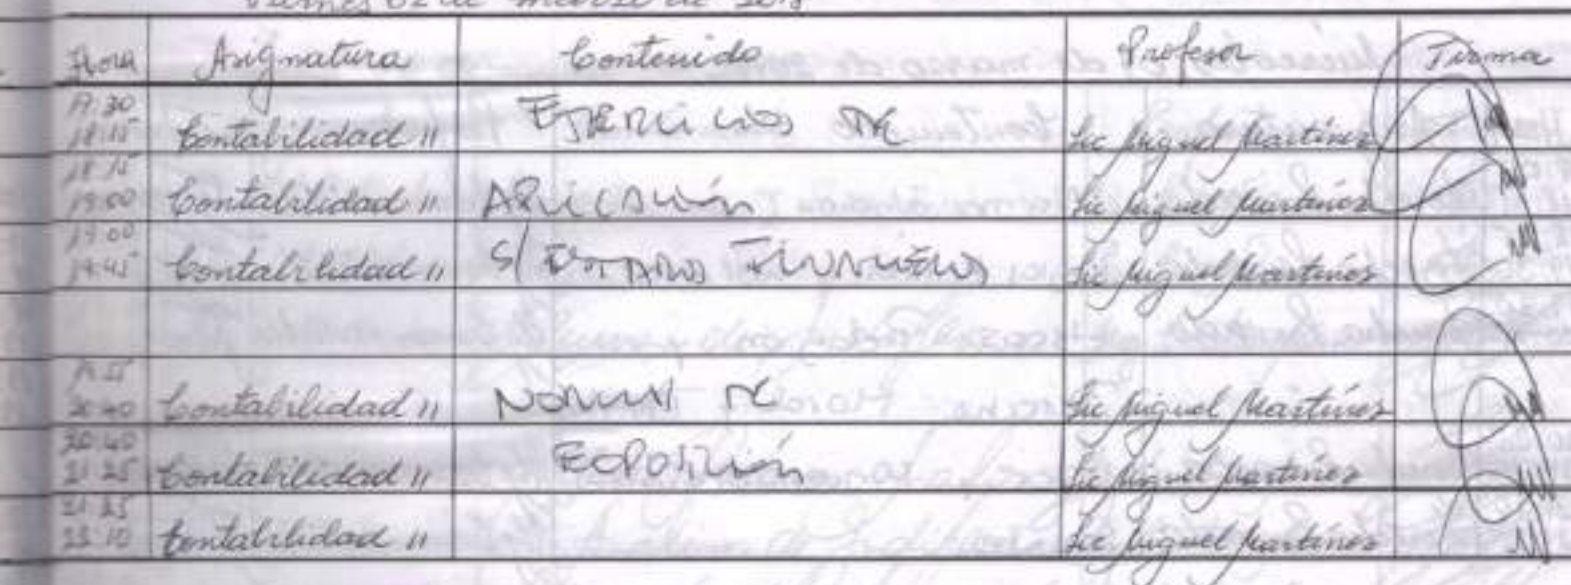 Viernes 02 de marzo de 2018
Hora Asignatura Contenido Profesor Firma
17:30
18:15 Contabilidad II EJERCICIOS DE Lic Miguel Martínez
18:15
19:00 Contabilidad II APLICACIÓN Lic Miguel Martínez
19:00
19:45 Contabilidad II S/ ESTADOS FINANCIEROS Lic Miguel Martínez
19:55
20:40 Contabilidad II NORMAS DE Lic Miguel Martínez
20:40
21:25 Contabilidad II EXPOSICIÓN Lic Miguel Martínez
21:25
Contabilidad II Lic Miguel Martínez